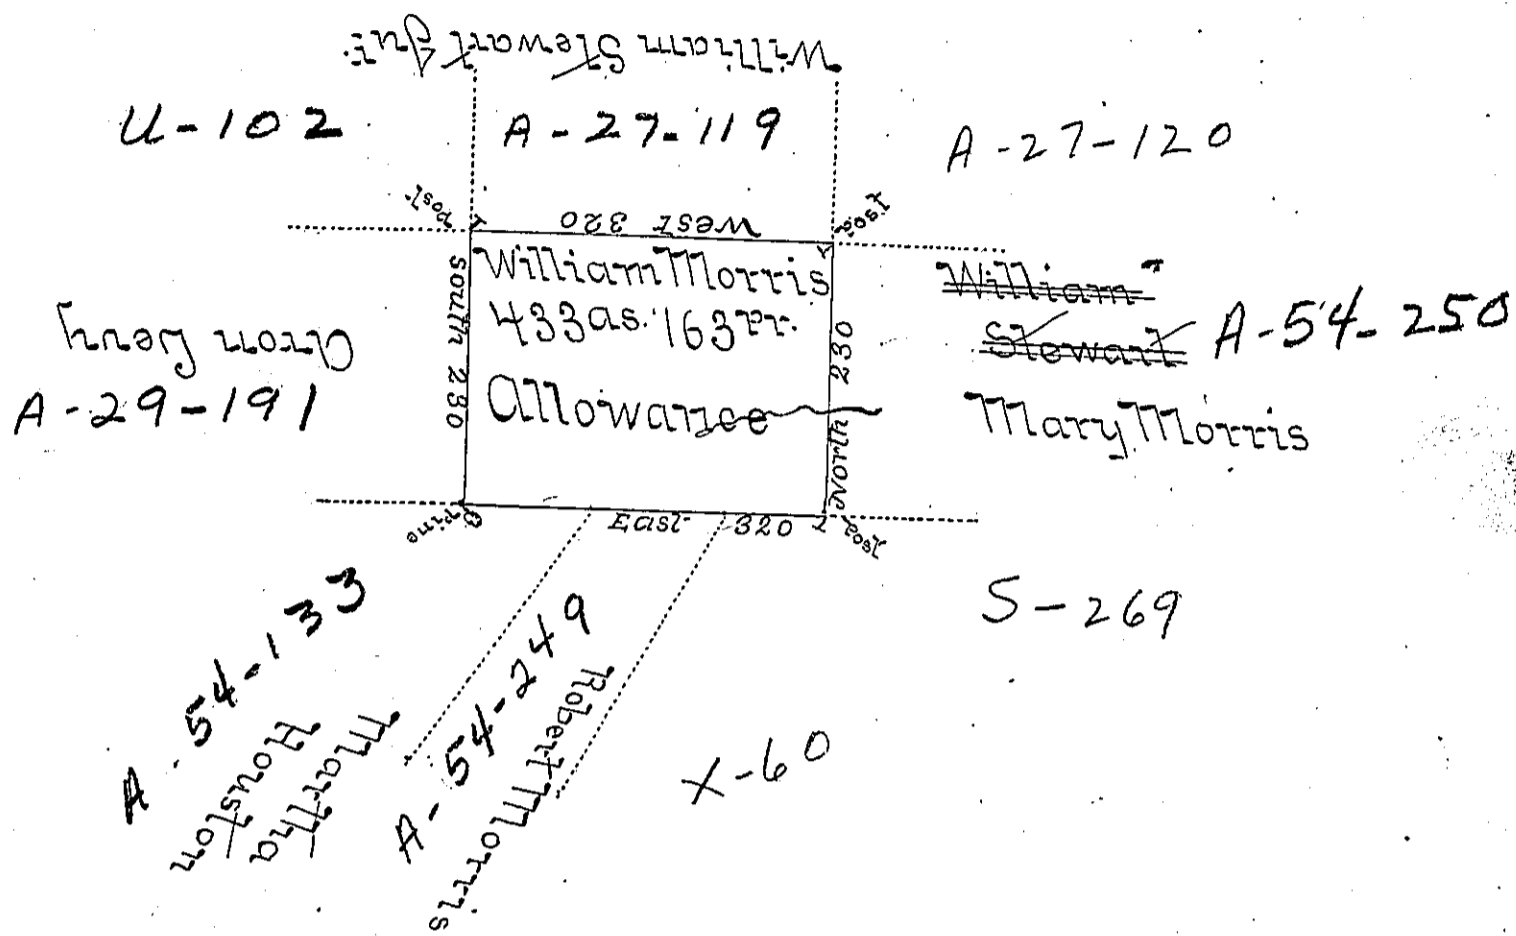 William Stewart Jur.
U-102
A-27-119
A-27-120
Post
West 320
Post
William Morris
433as. 163pr.
Allowance
South 230
North 230
William
Stewart
A-54-250
Mary Morris
Aron Levy
A-29-191
Pine
East 320
Post
A-54-133
Martha
Houston
A-54-249
Robert Morris
S-269
X-60